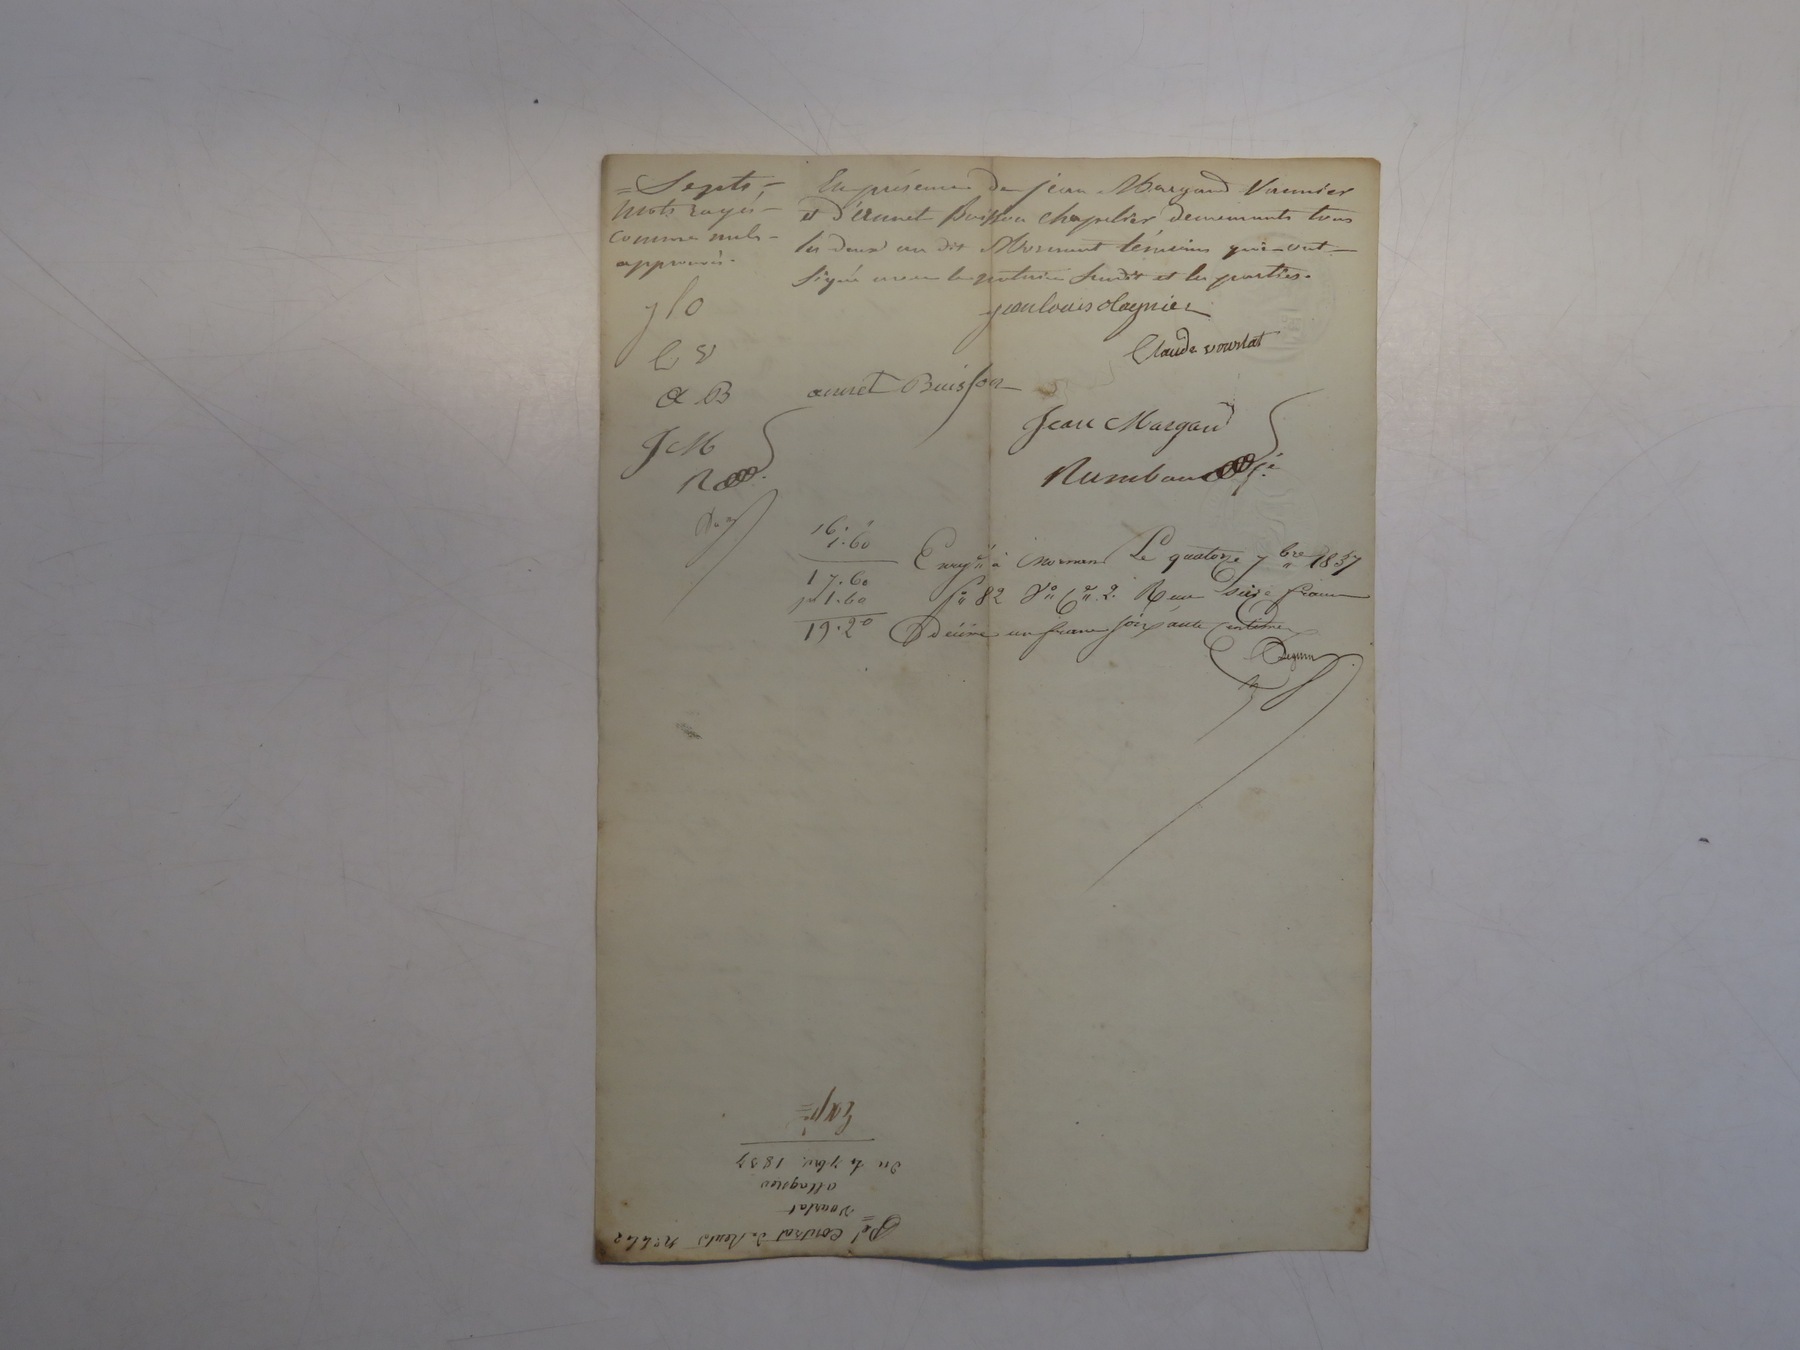 = Septs =
mots rayés =
comme nuls =
approuvés.
jlO
C V
A B
J M
R
En présence de Jean Margand Vannier
et d'annet Buisson chapelier demeurants tous
les deux au dit Mornant témoins qui ont
signé avec le notaire susdit et les parties.
jean louis olagnier
Claude vourlat
annet Buisson
Jean Margand
Rambaud
16.
1.60
17.60
1.60
19.20
Enreg. à Mornant Le quatorze 7bre 1837
f° 82 V° C. 2. Reçu seize francs
décime un franc soixante centimes
Expé
Du 7bre 1837
ollagnier
Vourlat
Contrat de Rente N°